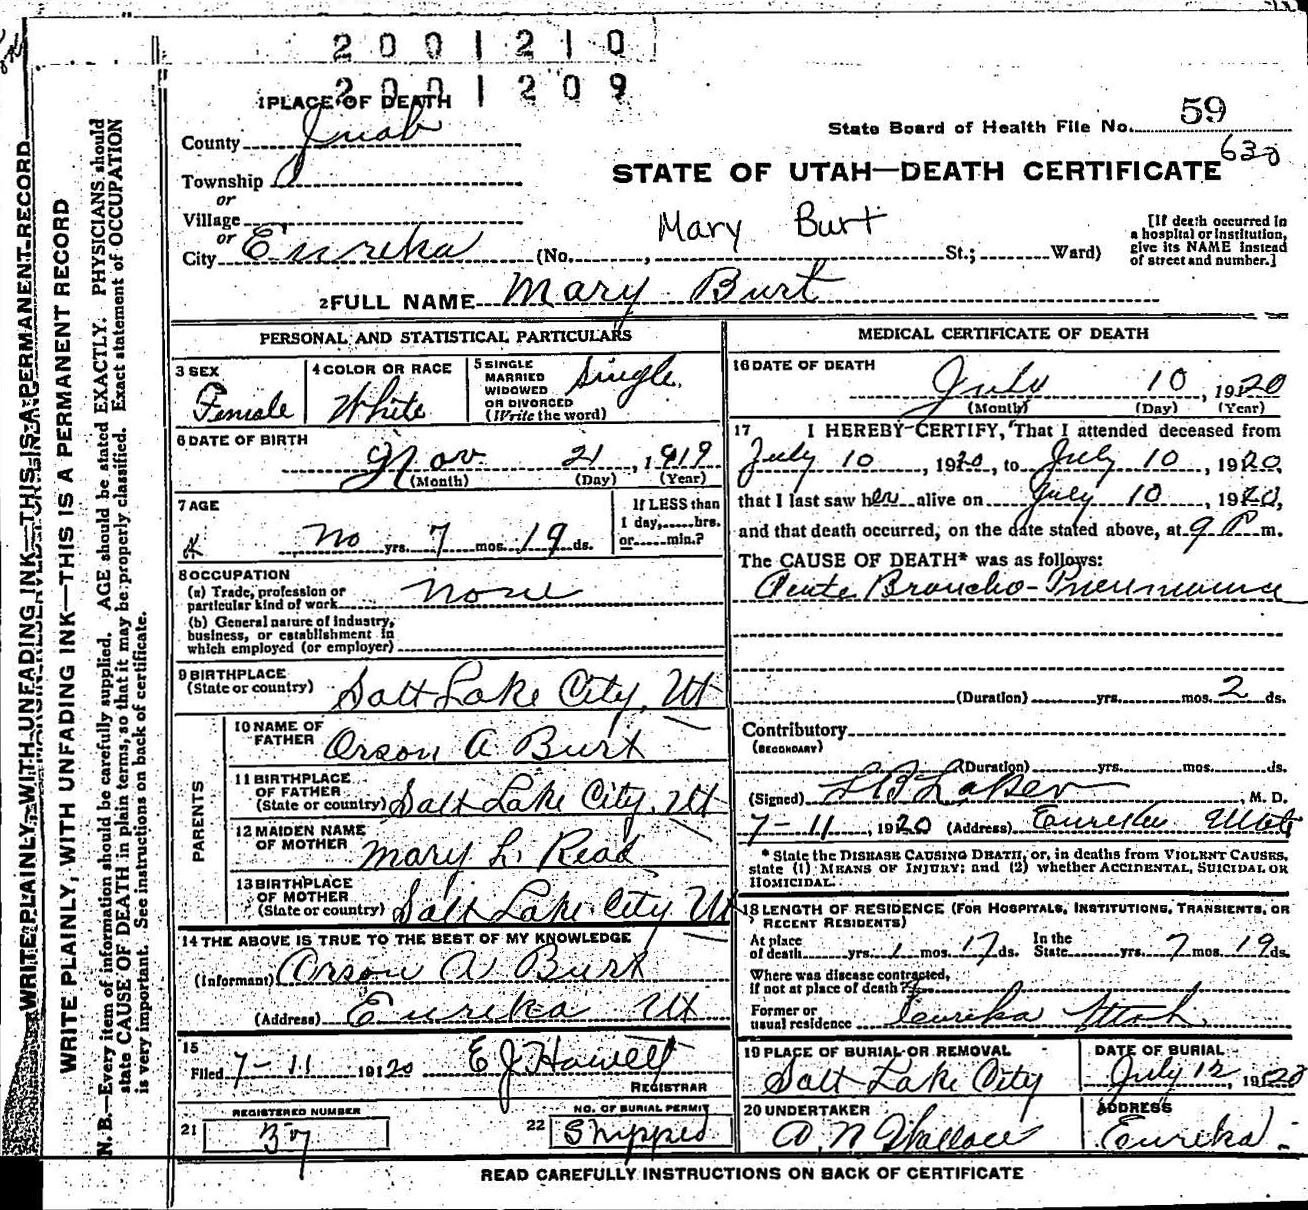 2001210
2001209
1 PLACE OF DEATH
County Juab
State Board of Health File No. 59
630
Township
or
Village
or
City Eureka (No. , St.; Ward)
STATE OF UTAH—DEATH CERTIFICATE
Mary Burt
[If death occurred in a hospital or institution, give its NAME instead of street and number.]
2 FULL NAME Mary Burt
PERSONAL AND STATISTICAL PARTICULARS
3 SEX
Female
4 COLOR OR RACE
White
5 SINGLE
MARRIED
WIDOWED
OR DIVORCED
(Write the word)
Single
6 DATE OF BIRTH
Nov 21, 1919
(Month) (Day) (Year)
7 AGE
No yrs. 7 mos. 19 ds.
If LESS than
1 day, hrs.
or min.?
8 OCCUPATION
(a) Trade, profession or
particular kind of work None
(b) General nature of industry,
business, or establishment in
which employed (or employer)
9 BIRTHPLACE
(State or country) Salt Lake City, Ut
PARENTS
10 NAME OF
FATHER Orson A Burt
11 BIRTHPLACE
OF FATHER
(State or country) Salt Lake City, Ut
12 MAIDEN NAME
OF MOTHER Mary L. Read
13 BIRTHPLACE
OF MOTHER
(State or country) Salt Lake City Ut
14 THE ABOVE IS TRUE TO THE BEST OF MY KNOWLEDGE
(Informant) Orson A Burt
(Address) Eureka Ut
15
Filed 7-11 1920 E J Howell
REGISTRAR
REGISTERED NUMBER
21 37
NO. OF BURIAL PERMIT
22 Shipped
MEDICAL CERTIFICATE OF DEATH
16 DATE OF DEATH
July 10, 1920
(Month) (Day) (Year)
17 I HEREBY CERTIFY, That I attended deceased from
July 10, 1920, to July 10, 1920,
that I last saw her alive on July 10, 1920,
and that death occurred, on the date stated above, at 9 P m.
The CAUSE OF DEATH* was as follows:
Acute Broncho-Pneumonia
(Duration) yrs. mos. 2 ds.
Contributory
(SECONDARY)
(Duration) yrs. mos. ds.
(Signed) , M. D.
7-11, 1920 (Address) Eureka Utah
* State the DISEASE CAUSING DEATH, or, in deaths from VIOLENT CAUSES,
state (1) MEANS OF INJURY; and (2) whether ACCIDENTAL, SUICIDAL OR
HOMICIDAL.
18 LENGTH OF RESIDENCE (FOR HOSPITALS, INSTITUTIONS, TRANSIENTS, OR
RECENT RESIDENTS)
At place
of death yrs. 1 mos. 17 ds. In the
State yrs. 7 mos. 19 ds.
Where was disease contracted,
if not at place of death?
Former or
usual residence Eureka Utah
19 PLACE OF BURIAL OR REMOVAL
Salt Lake City
DATE OF BURIAL
July 12, 1920
20 UNDERTAKER
A. N Wallace
ADDRESS
Eureka
READ CAREFULLY INSTRUCTIONS ON BACK OF CERTIFICATE
WRITE PLAINLY, WITH UNFADING INK—THIS IS A PERMANENT RECORD
WRITE PLAINLY, WITH UNFADING INK—THIS IS A PERMANENT RECORD
N. B.—Every item of information should be carefully supplied. AGE should be stated EXACTLY. PHYSICIANS should
state CAUSE OF DEATH in plain terms, so that it may be properly classified. Exact statement of OCCUPATION
is very important. See instructions on back of certificate.